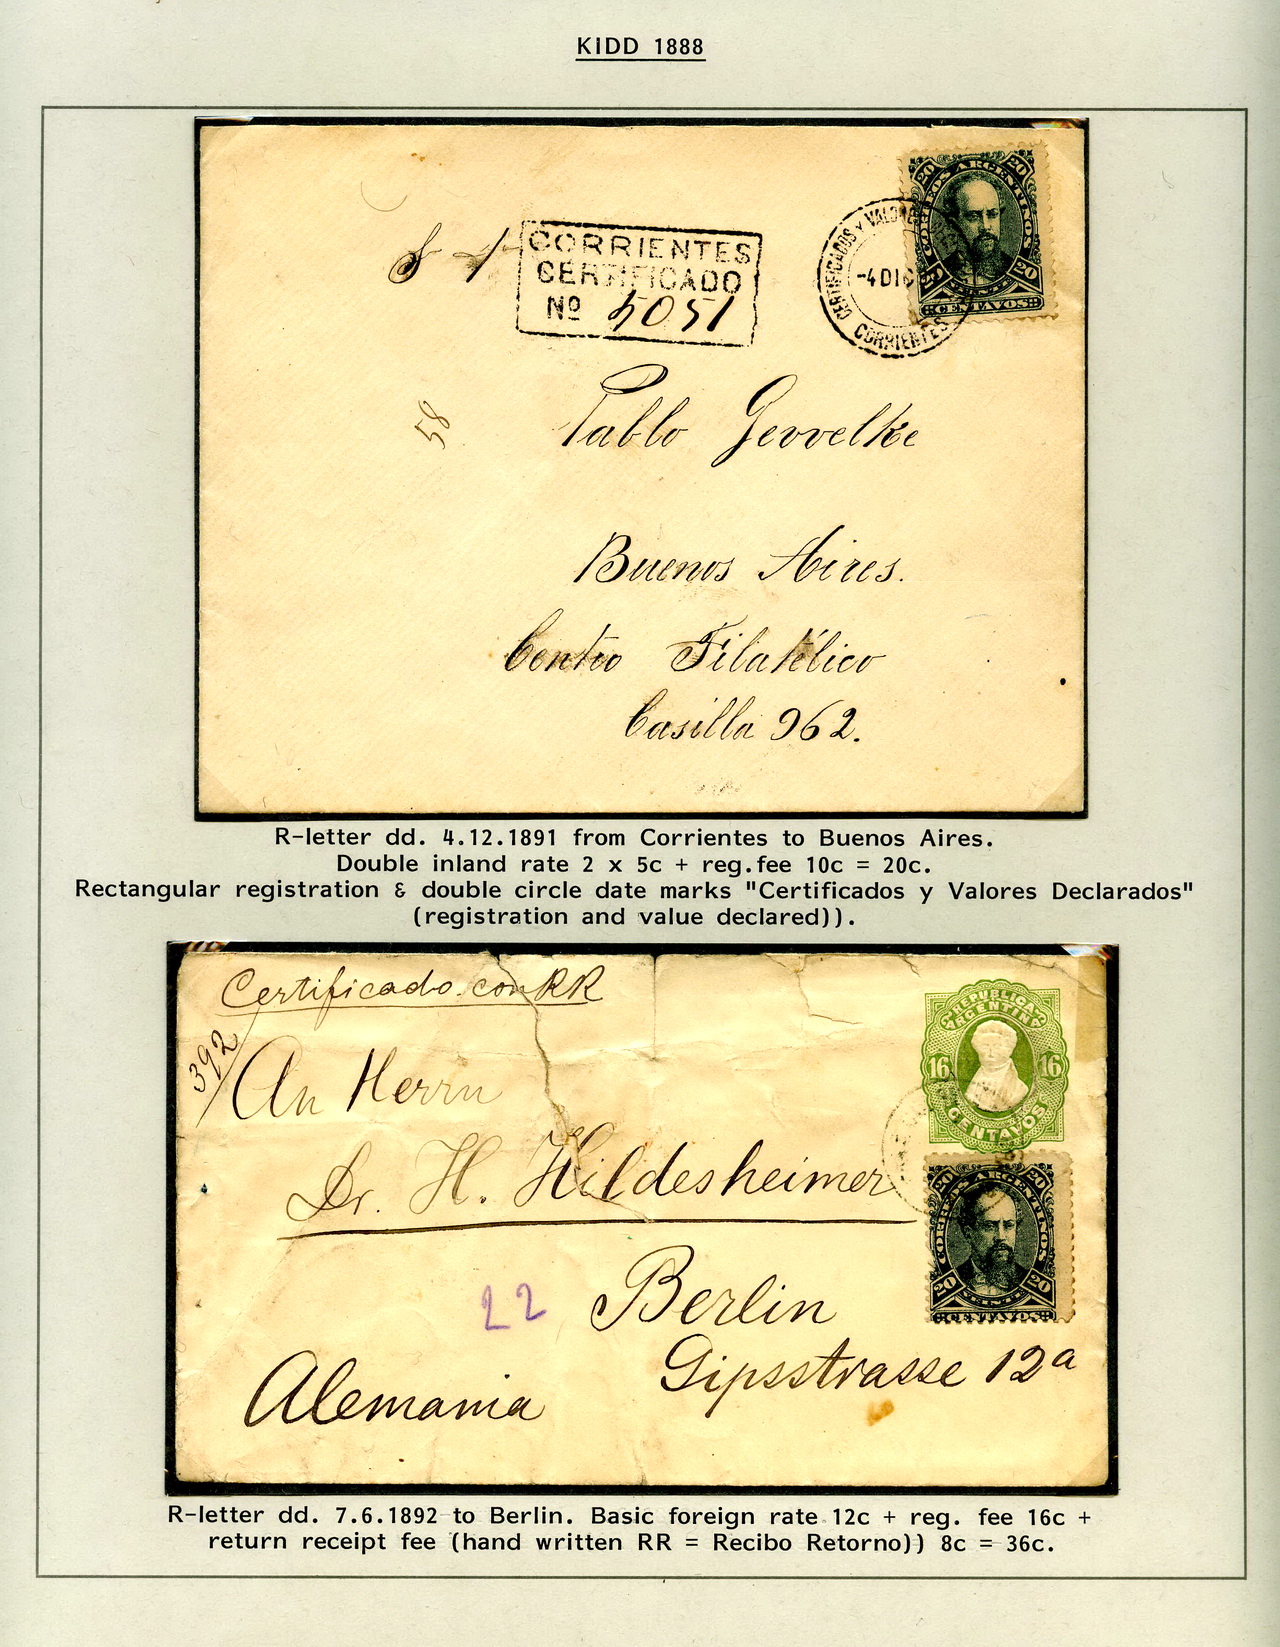 KIDD 1888
CORREOS ARGENTINOS
20 20
20 20
VEINTE
CENTAVOS
CORRIENTES
CERTIFICADO
Nº 5051
CERTIFICADOS Y VALORES
-4 DIC
CORRIENTES
58
Pablo Gevvelke
Buenos Aires.
Centro Filatélico
Casilla 962.
R-letter dd. 4.12.1891 from Corrientes to Buenos Aires.
Double inland rate 2 x 5c + reg.fee 10c = 20c.
Rectangular registration & double circle date marks "Certificados y Valores Declarados"
(registration and value declared)).
Certificado con RR
392
REPUBLICA
ARGENTINA
16 16
CENTAVOS
An Herrn
Dr. H. Hildesheimer
CORREOS ARGENTINOS
20 20
20 20
VEINTE
CENTAVOS
22
Berlin
Gipsstrasse 12a
Alemania
R-letter dd. 7.6.1892 to Berlin. Basic foreign rate 12c + reg. fee 16c +
return receipt fee (hand written RR = Recibo Retorno)) 8c = 36c.